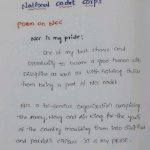 National cadet corps
Poem on NCC
NCC is my pride:
One of my best choice and
opportunity to become a good human with
discipline as well as with holding duty
from being a part of NCC cadet.
NCC a tri-services organization comprising
the Army, Navy and Air Wing for the youth
of the country moulding them into disciplined
and patriotic citizens. It is my pride.